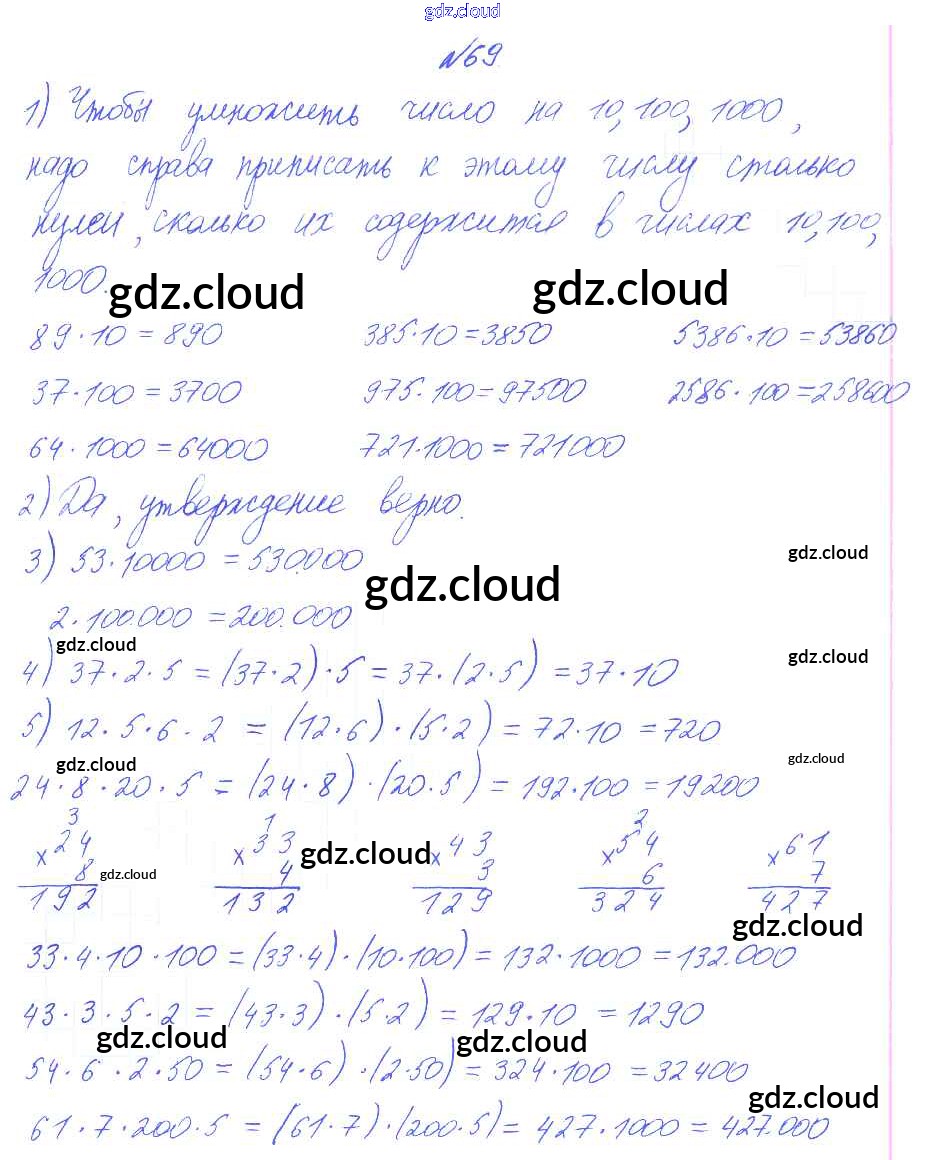 gdz.cloud
№69
1) Чтобы умножить число на 10, 100, 1000,
надо справа приписать к этому числу столько
нулей, сколько их содержится в числах 10, 100,
1000.
gdz.cloud gdz.cloud
89·10=890 385·10=3850 5386·10=53860
37·100=3700 975·100=97500 2586·100=258600
64·1000=64000 721·1000=721000
2) Да, утверждение верно.
3) 53·10000=530.000
gdz.cloud
gdz.cloud
2·100.000=200.000
gdz.cloud
gdz.cloud
4) 37·2·5=(37·2)·5=37·(2·5)=37·10
5) 12·5·6·2=(12·6)·(5·2)=72·10=720
gdz.cloud gdz.cloud
24·8·20·5=(24·8)·(20·5)=192·100=19200
3 1 2
×24 ×33 ×43 ×54 ×61
gdz.cloud
8 4 3 6 7
gdz.cloud
192 132 129 324 427
gdz.cloud
33·4·10·100=(33·4)·(10·100)=132·1000=132.000
43·3·5·2=(43·3)·(5·2)=129·10=1290
gdz.cloud gdz.cloud
54·6·2·50=(54·6)·(2·50)=324·100=32400
gdz.cloud
61·7·200·5=(61·7)·(200·5)=427·1000=427.000